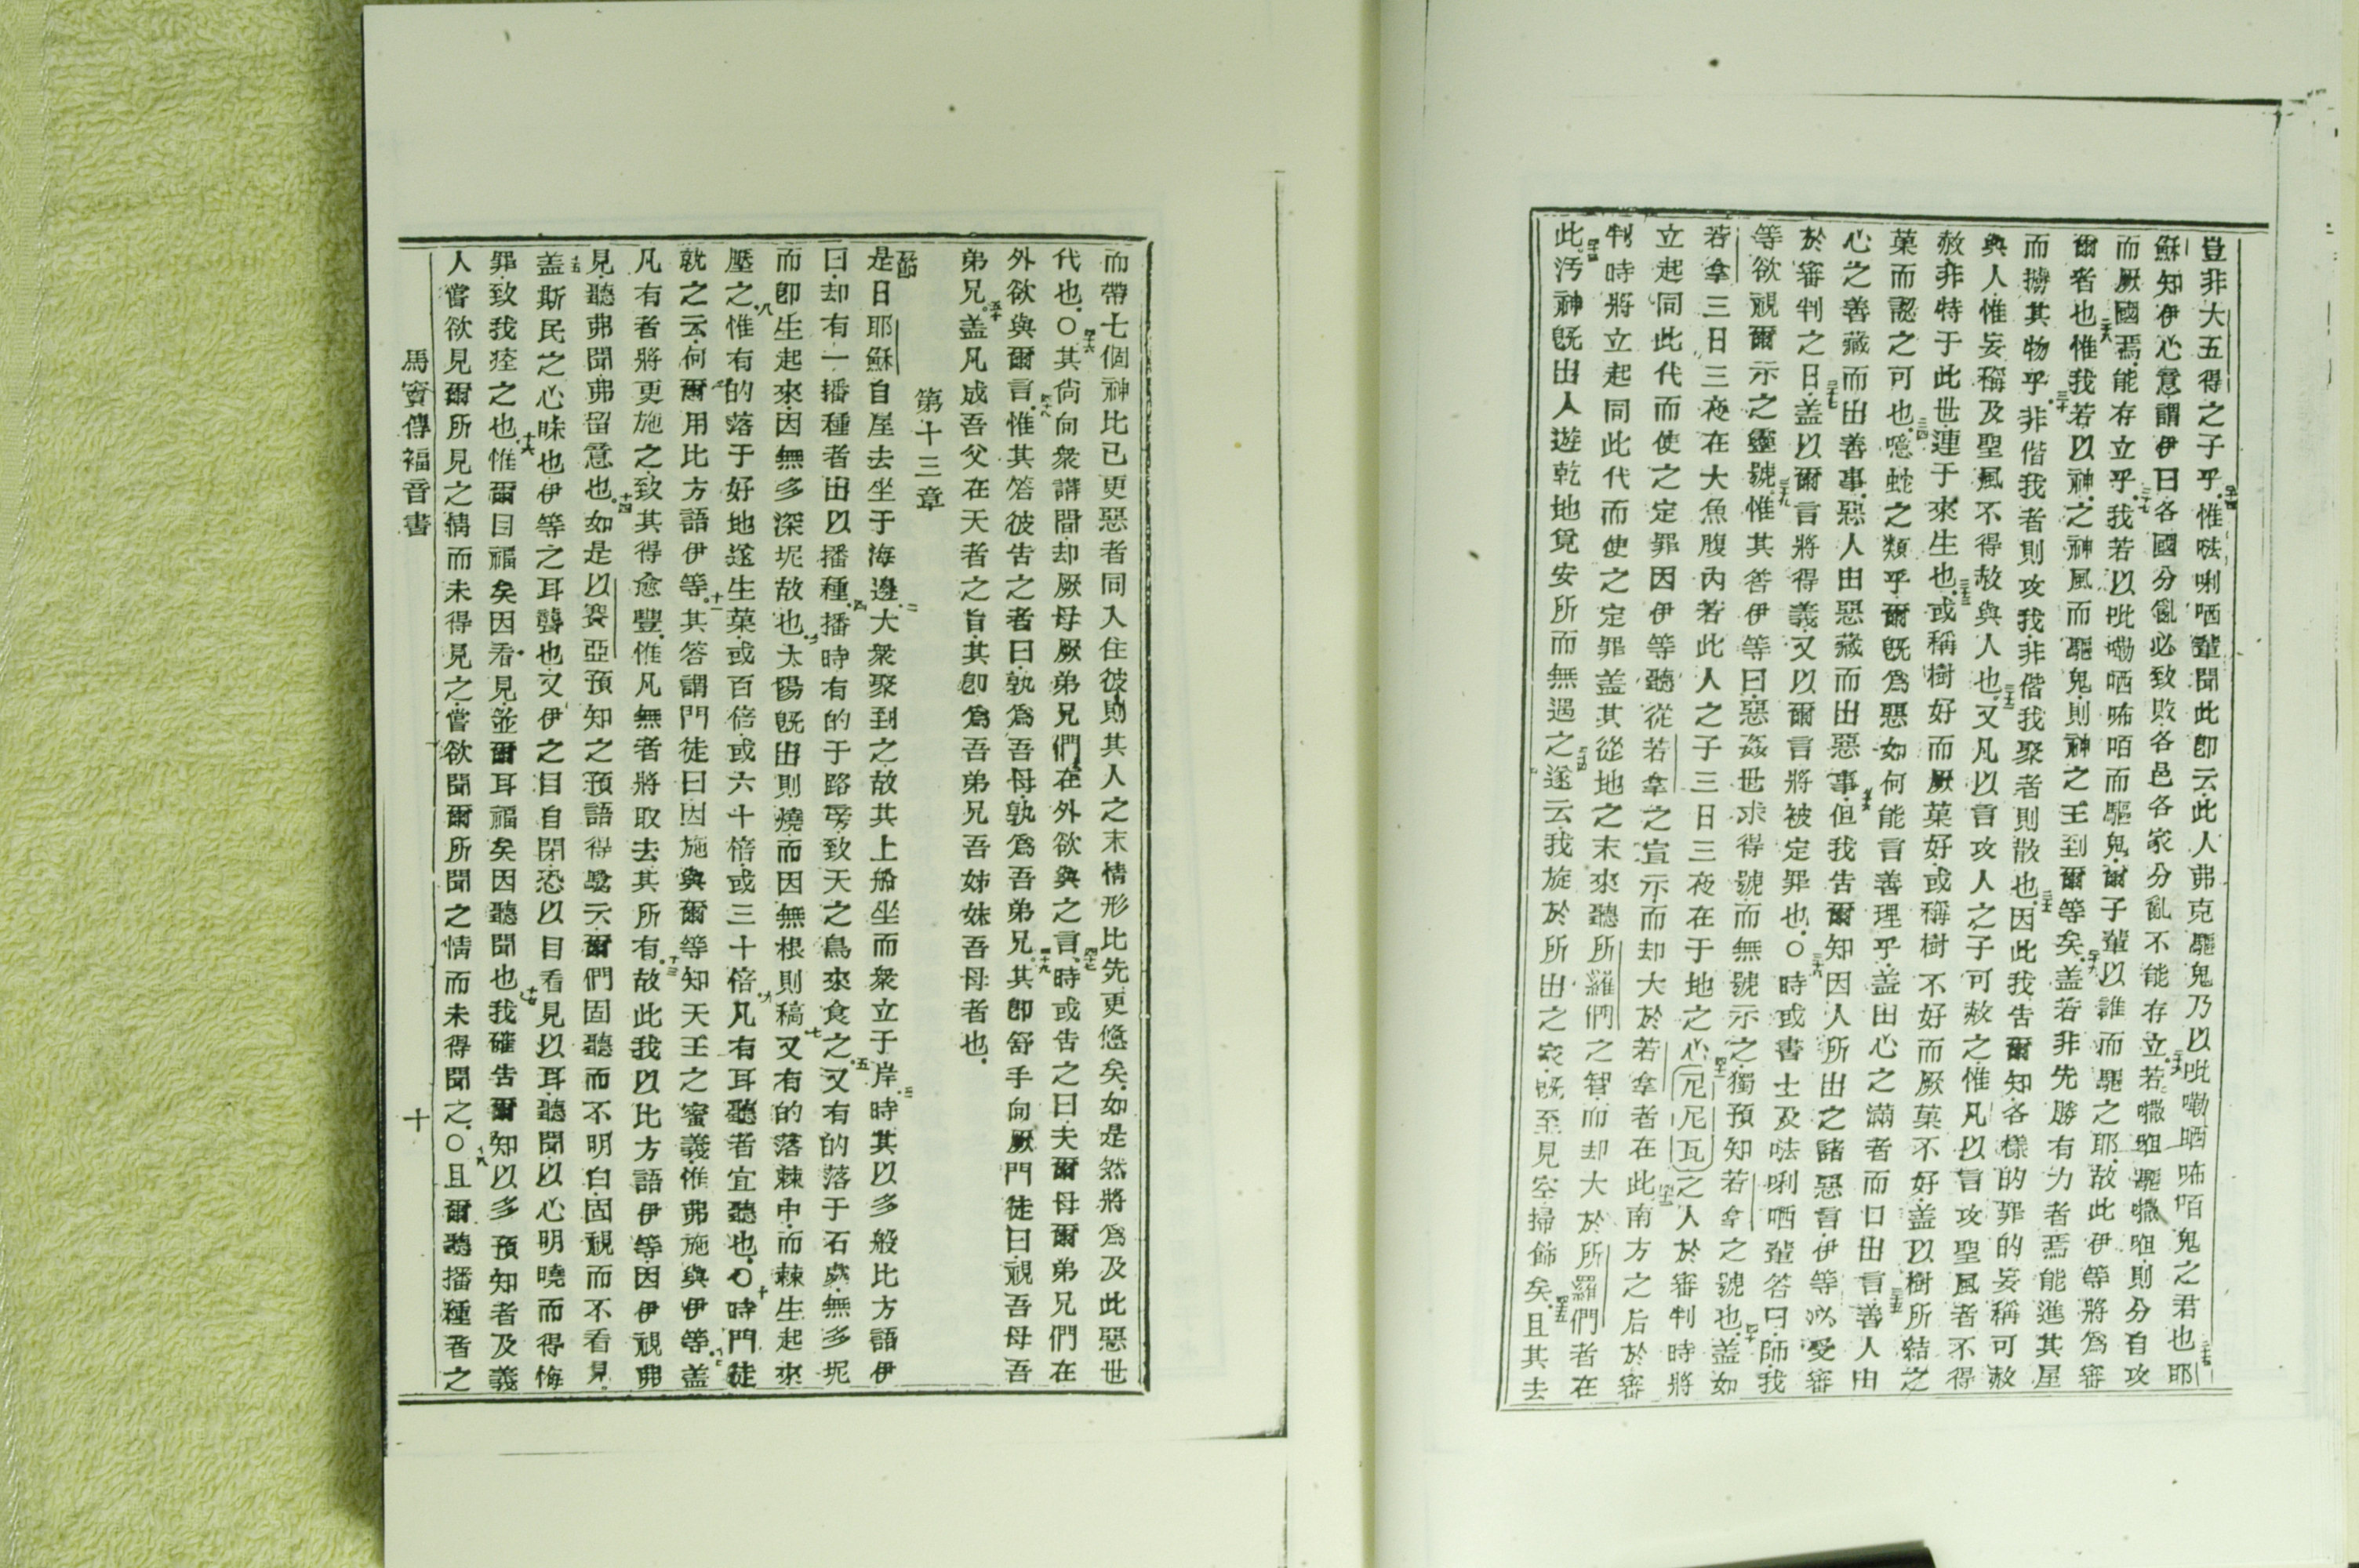 豈非大五得之子乎惟𠵽唎哂輩聞此即云此人弗克驅鬼乃以吡嘞哂咘咟鬼之君也耶
穌知伊心意謂伊曰各國分亂必致敗各邑各家分亂不能存立若𠾏咀驅𠾏咀則分自攻
而厥國焉能存立乎我若以吡嘞哂咘咟而驅鬼爾子輩以誰而驅之耶故此伊等將為審
爾者也惟我若以神之神風而驅鬼則神之王到爾等矣盖若非先勝有力者焉能進其屋
而擄其物乎非偕我者則攻我非偕我聚者則散也因此我告爾知各樣的罪的妄稱可赦
與人惟妄稱及聖風不得赦與人也又凡以言攻人之子可赦之惟凡以言攻聖風者不得
赦非特于此世連于來生也或稱樹好而厥菓好或稱樹不好而厥菓不好盖以樹所結之
菓而認之可也噫蛇之類乎爾旣為惡如何能言善理乎盖由心之滿者而口出言善人由
心之善藏而出善事惡人由惡藏而出惡事但我告爾知因人所出之諸惡言伊等必受審
於審判之日盖以爾言將得義又以爾言將被定罪也○時或書士及𠵽唎哂輩答曰師我
等欲視爾示之靈號惟其答伊等曰惡姦世求得號而無號示之獨預知若拿之號也盖如
若拿三日三夜在大魚腹內若此人之子三日三夜在于地之心尼尼瓦之人於審判時將
立起同此代而使之定罪因伊等聽從若拿之宣示而却大於若拿者在此南方之后於審
判時將立起同此代而使之定罪盖其從地之末來聽所羅們之智而却大於所羅們者在
此汚神旣出人遊乾地覓安所而無遇之遂云我旋於所出之家旣至見空掃飾矣且其去
而帶七個神比已更惡者同入住彼則其人之末情形比先更慘矣如是然將為及此惡世
代也○其尙向衆講間却厥母厥弟兄們在外欲與之言時或告之曰夫爾母爾弟兄們在
外欲與爾言惟其答彼告之者曰孰為吾母孰為吾弟兄其卽舒手向厥門徒曰視吾母吾
弟兄盖凡成吾父在天者之旨其卽為吾弟兄吾姊妹吾母者也
第十三章
是日耶穌自屋去坐于海邊大衆聚到之故其上船坐而衆立于岸時其以多般比方語伊
曰却有一播種者出以播種播時有的于路旁致天之鳥來食之又有的落于石處無多坭
而卽生起來因無多深坭故也太陽旣出則燒而因無根則稿又有的落棘中而棘生起來
壓之惟有的落于好地遂生菓或百倍或六十倍或三十倍凡有耳聽者宜聽也○時門徒
就之云何爾用比方語伊等其答謂門徒曰因施與爾等知天王之密義惟弗施與伊等盖
凡有者將更施之致其得愈豐惟凡無者將取去其所有故此我以比方語伊等因伊視弗
見聽弗聞弗留意也如是以賽亞預知之預語得驗云爾們固聽而不明白固視而不看見
盖斯民之心昧也伊等之耳聾也又伊之目自閉恐以目看見以耳聽聞以心明曉而得悔
罪致我痊之也惟爾目福矣因看見並爾耳福矣因聽聞也我確告爾知以多預知者及義
人嘗欲見爾所見之情而未得見之嘗欲聞爾所聞之情而未得聞之○且爾聽播種者之
馬竇傳福音書 十